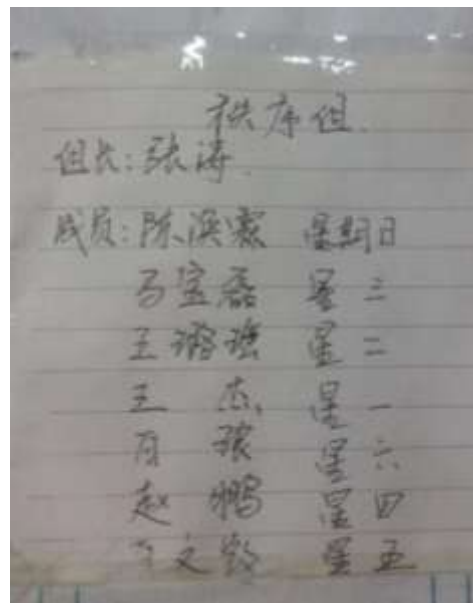 秩序组
组长:张海
成员:陈滨霖 星期日
马宝磊 星三
王璐瑶 星二
王杰 星一
星六
赵鹏 星四
文 星五